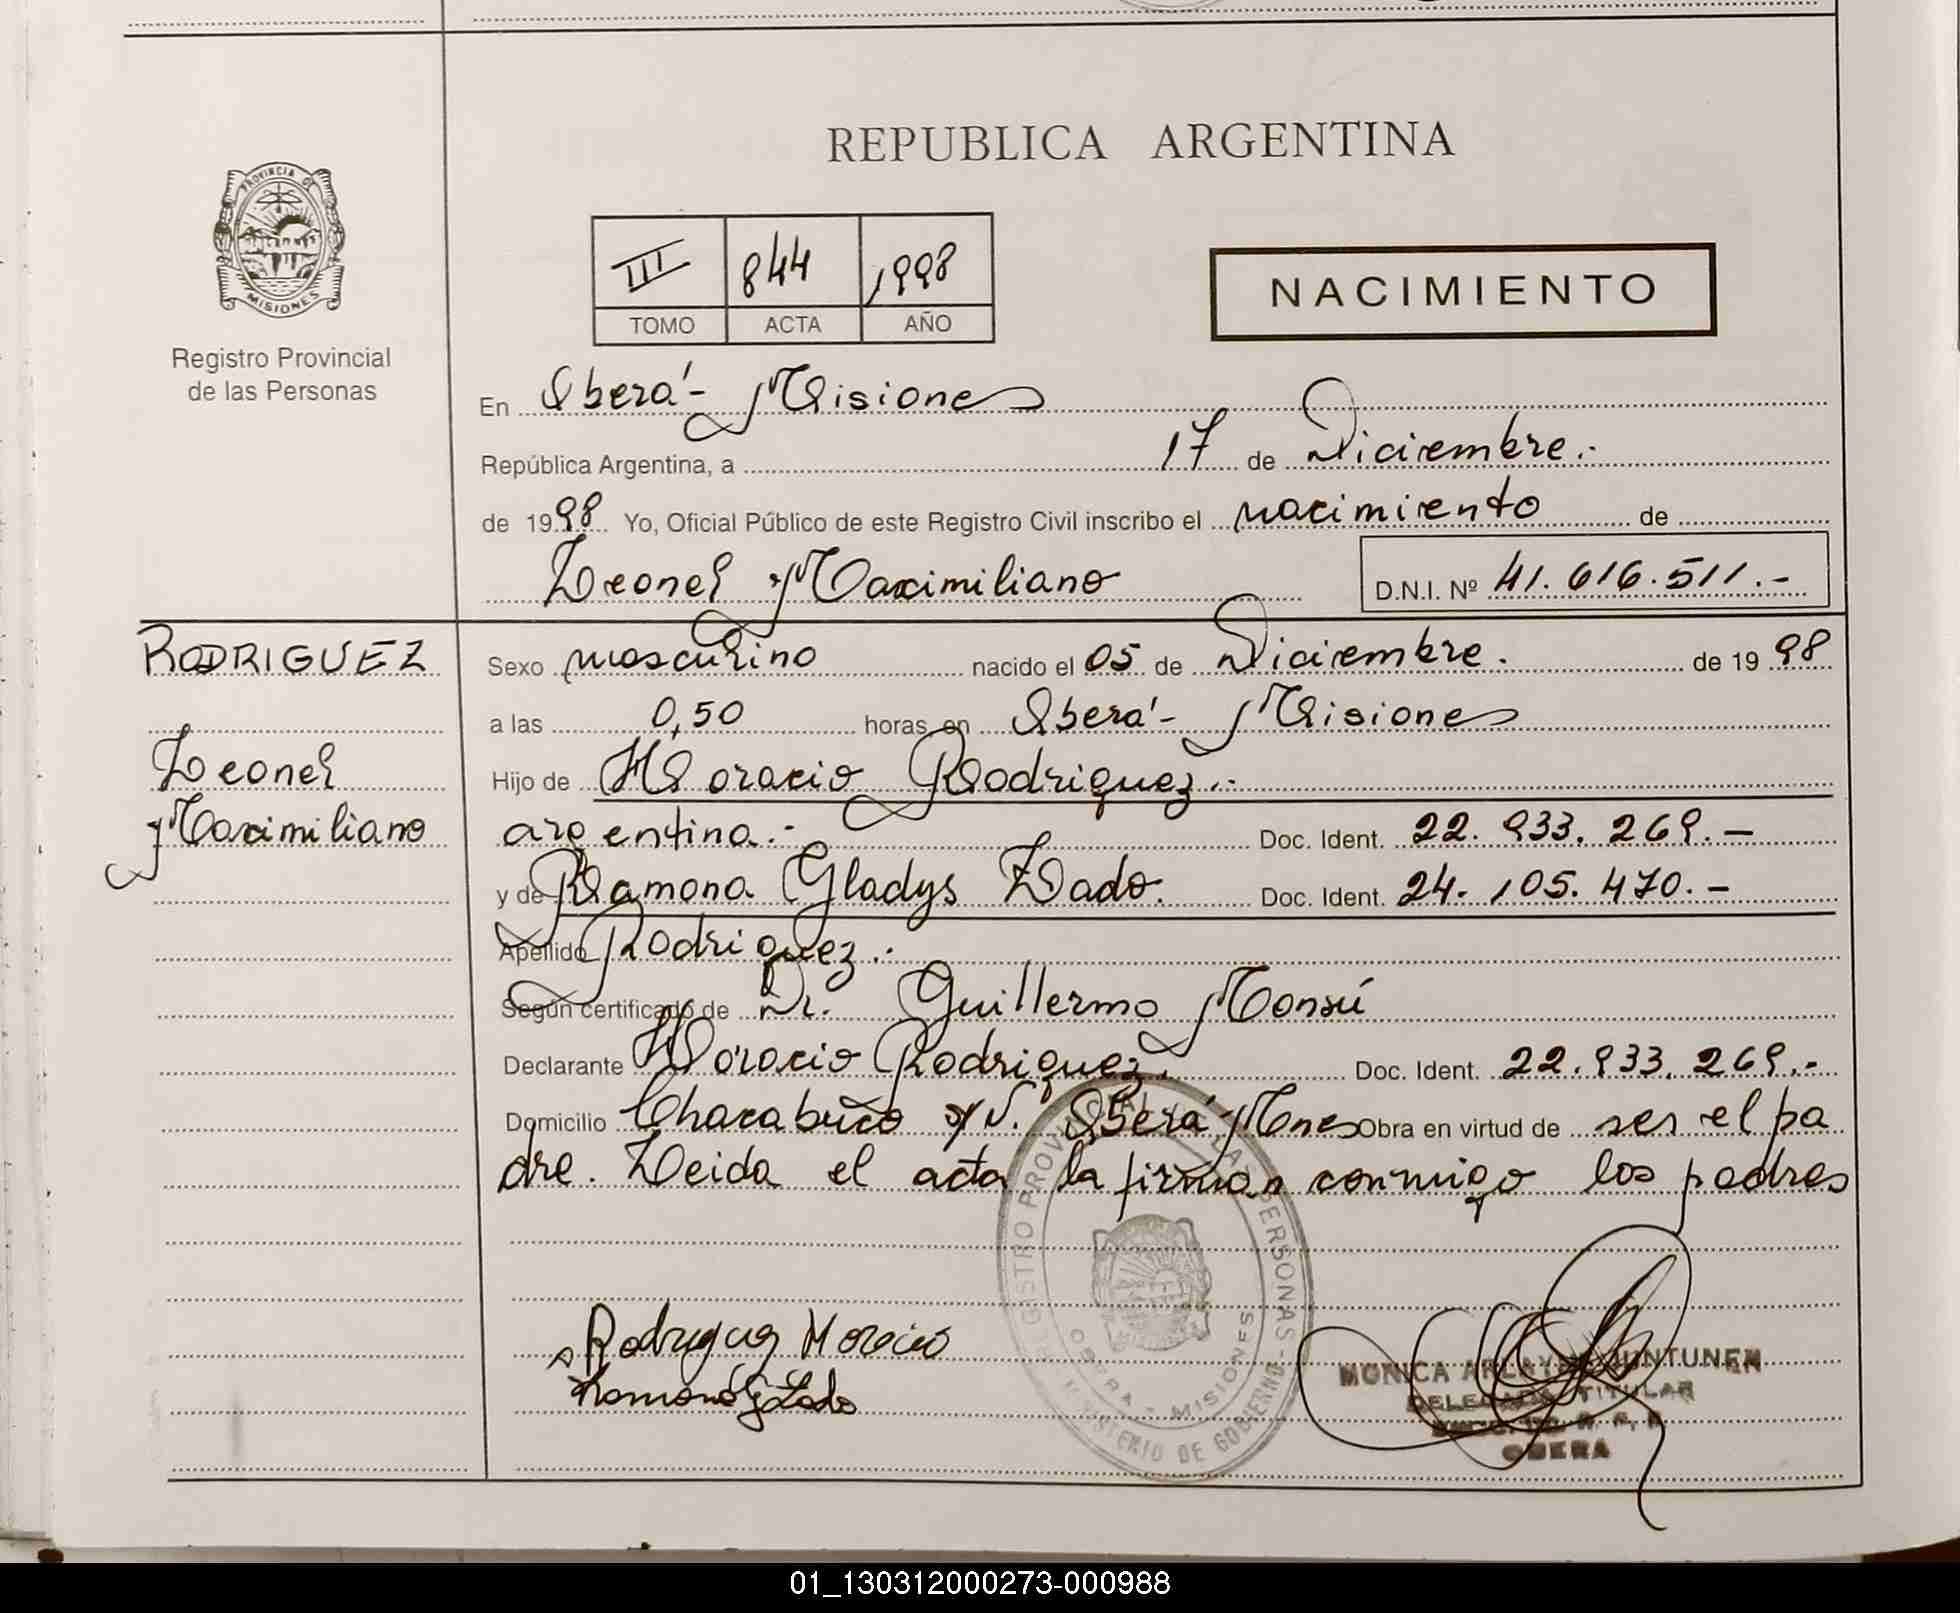 REPUBLICA ARGENTINA
PROVINCIA DE
MISIONES
Registro Provincial
de las Personas
III 844 1998
TOMO ACTA AÑO
NACIMIENTO
En Oberá - Misiones
República Argentina, a 17 de Diciembre.-
de 1998 Yo, Oficial Público de este Registro Civil inscribo el nacimiento de
Leonel Maximiliano D.N.I. Nº 41.616.511.-
RODRIGUEZ
Leonel
Maximiliano
Sexo masculino nacido el 05 de Diciembre. de 1998
a las 0,50 horas en Oberá - Misiones
Hijo de Horacio Rodriguez.-
argentina.- Doc. Ident. 22.933.269.-
y de Ramona Gladys Lado. Doc. Ident. 24.105.470.-
Apellido Rodriguez.
Según certificado de Dr. Guillermo Monsú
Declarante Horacio Rodriguez. Doc. Ident. 22.933.269.-
Domicilio Chacabuco s/N. Oberá Mnes Obra en virtud de ser el pa
dre. Leida el acta la firman conmigo los padres
Rodriguez Horacio
Ramona G Lado
REGISTRO PROVINCIAL DE LAS PERSONAS - MINISTERIO DE GOBIERNO
OBERA - MISIONES
MONICA HUNTUNEN
DELEGADA TITULAR
OBERA
01_130312000273-000988